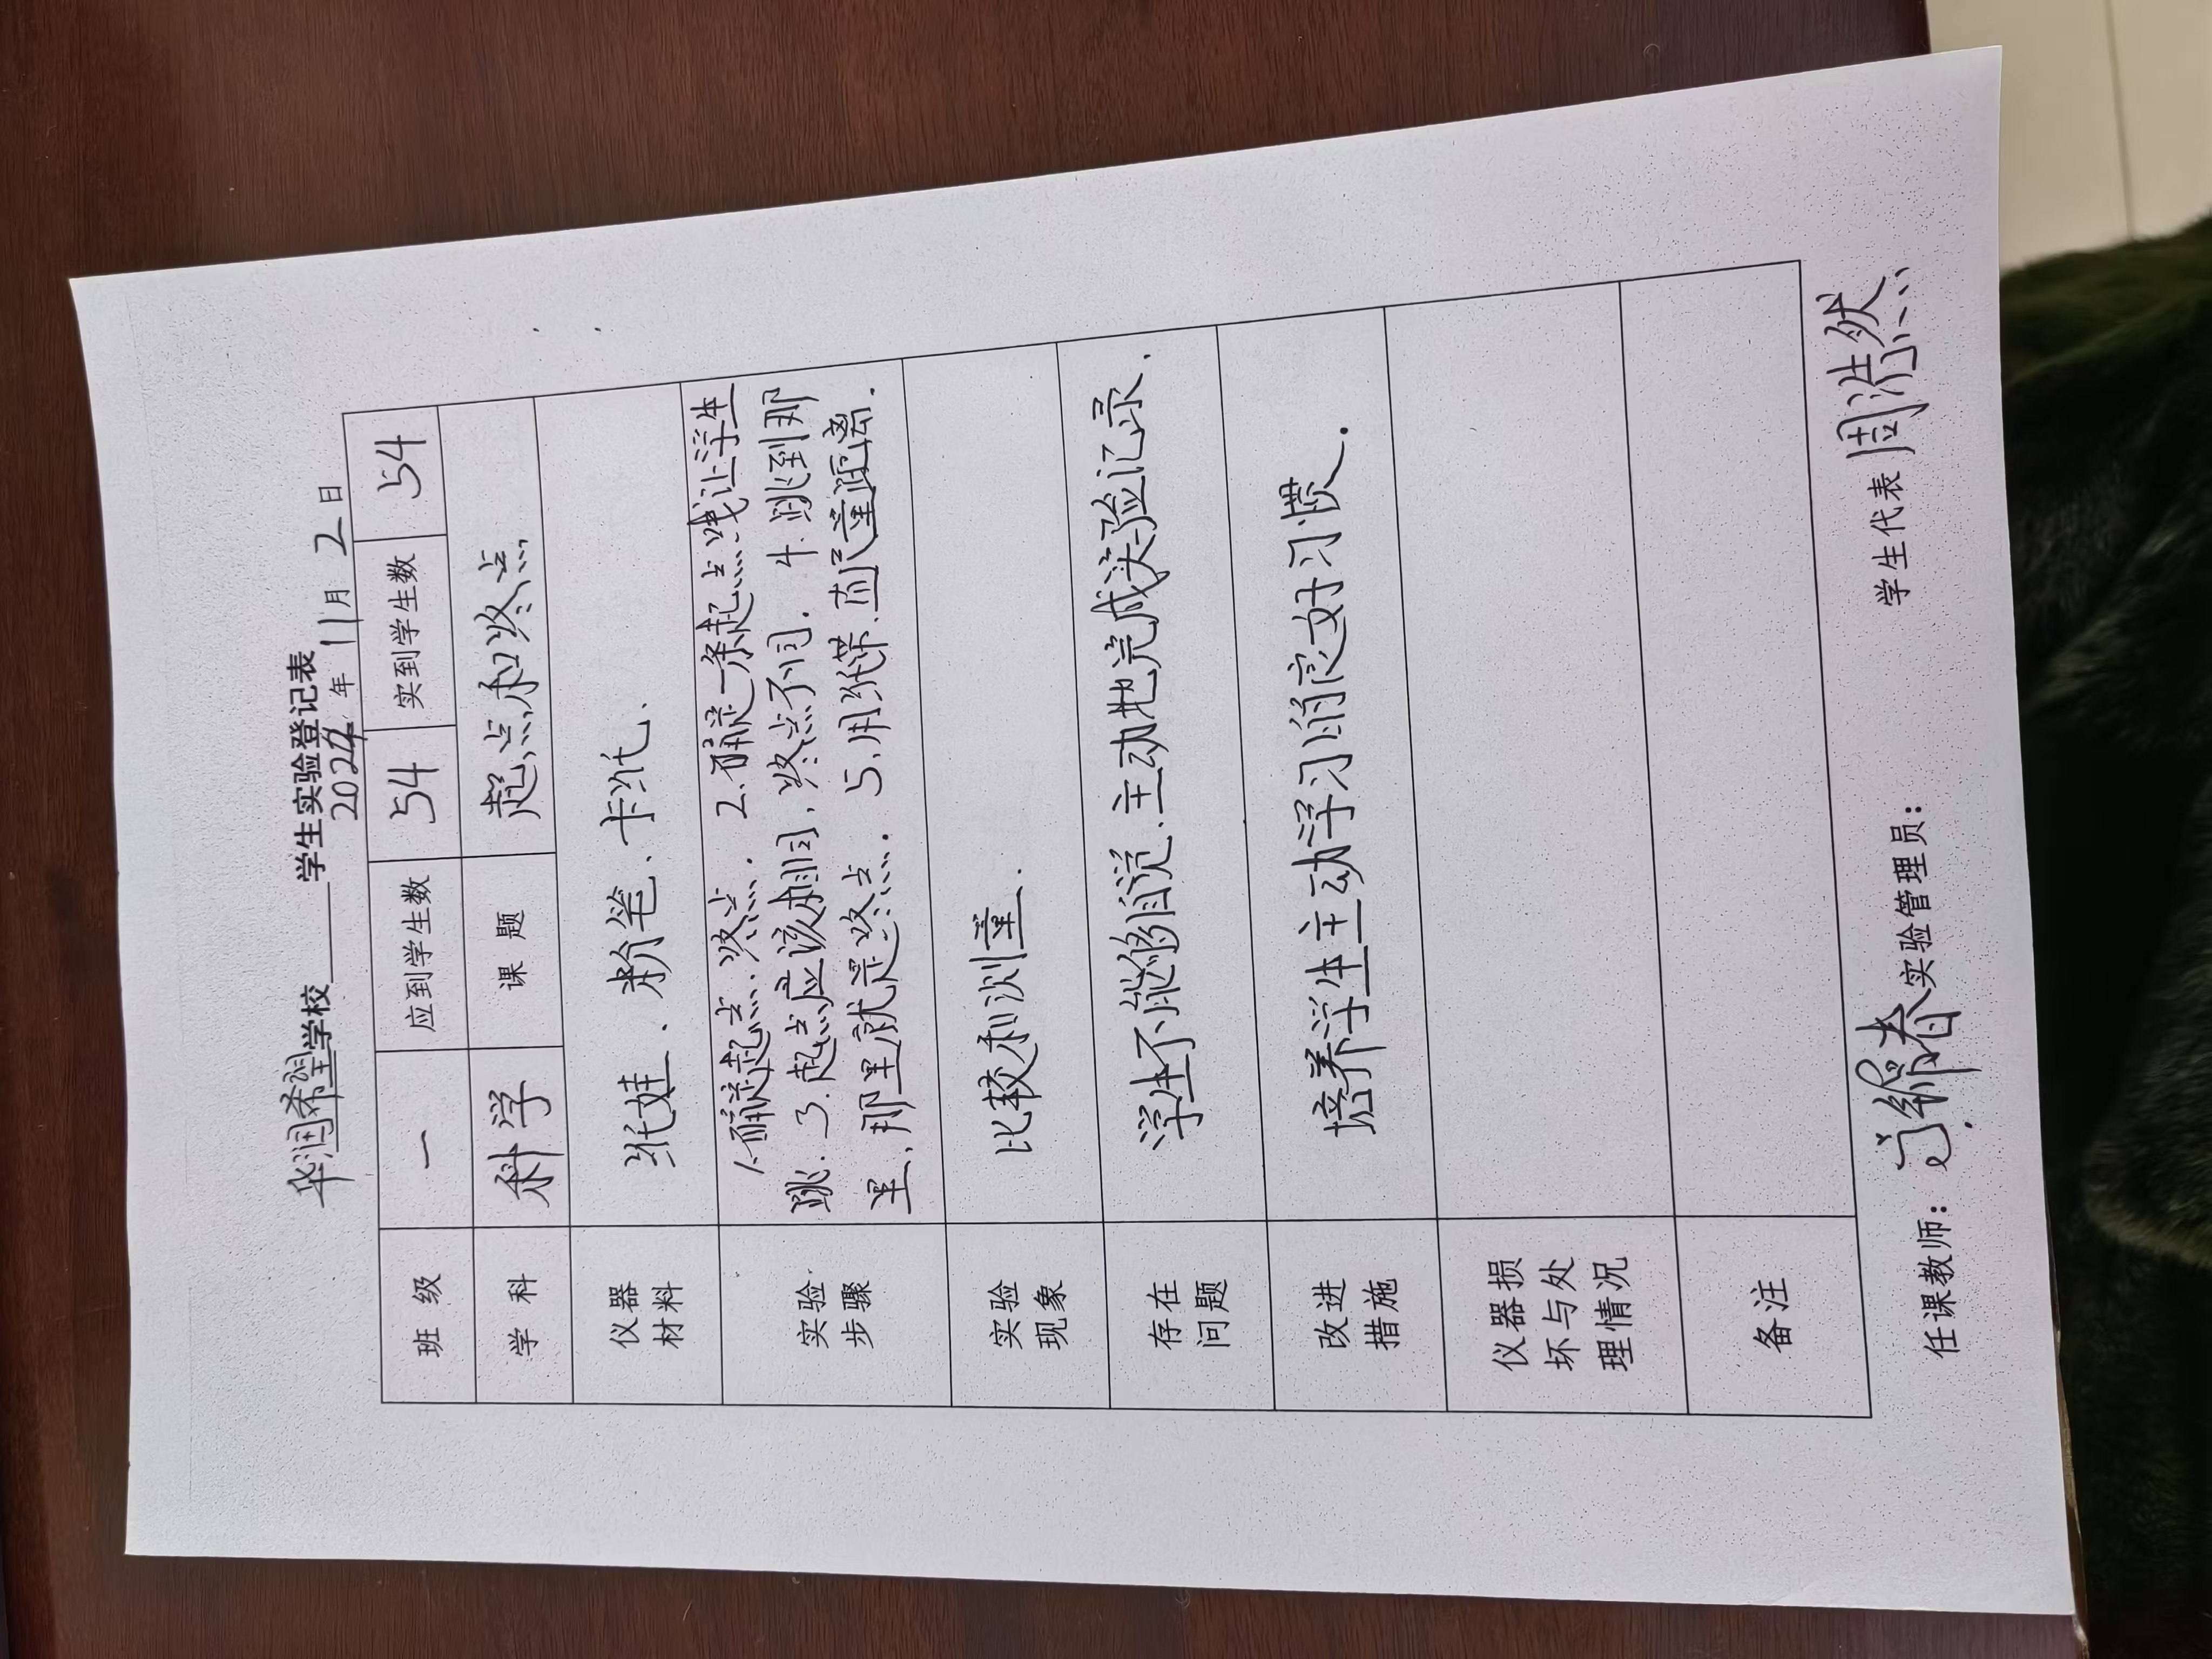 华润希望学校____学生实验登记表
2024年11月2日
班 级 一 应到学生数 54 实到学生数 54
学 科 科学 课 题 起点和终点
仪器
材料
纸娃、粉笔、卡纸.
实验
步骤
1.确定起点、终点. 2.确定一条起点线让学生
跳. 3.起点应该相同,终点不同. 4.跳到那
里,那里就是终点. 5.用纸带.直尺量距离.
实验
现象
比较和测量.
存在
问题
学生不能够自觉.主动地完成实验记录.
改进
措施
培养学生主动学习的良好习惯.
仪器损
坏与处
理情况
备注
任课教师: 实验管理员: 学生代表 周浩然